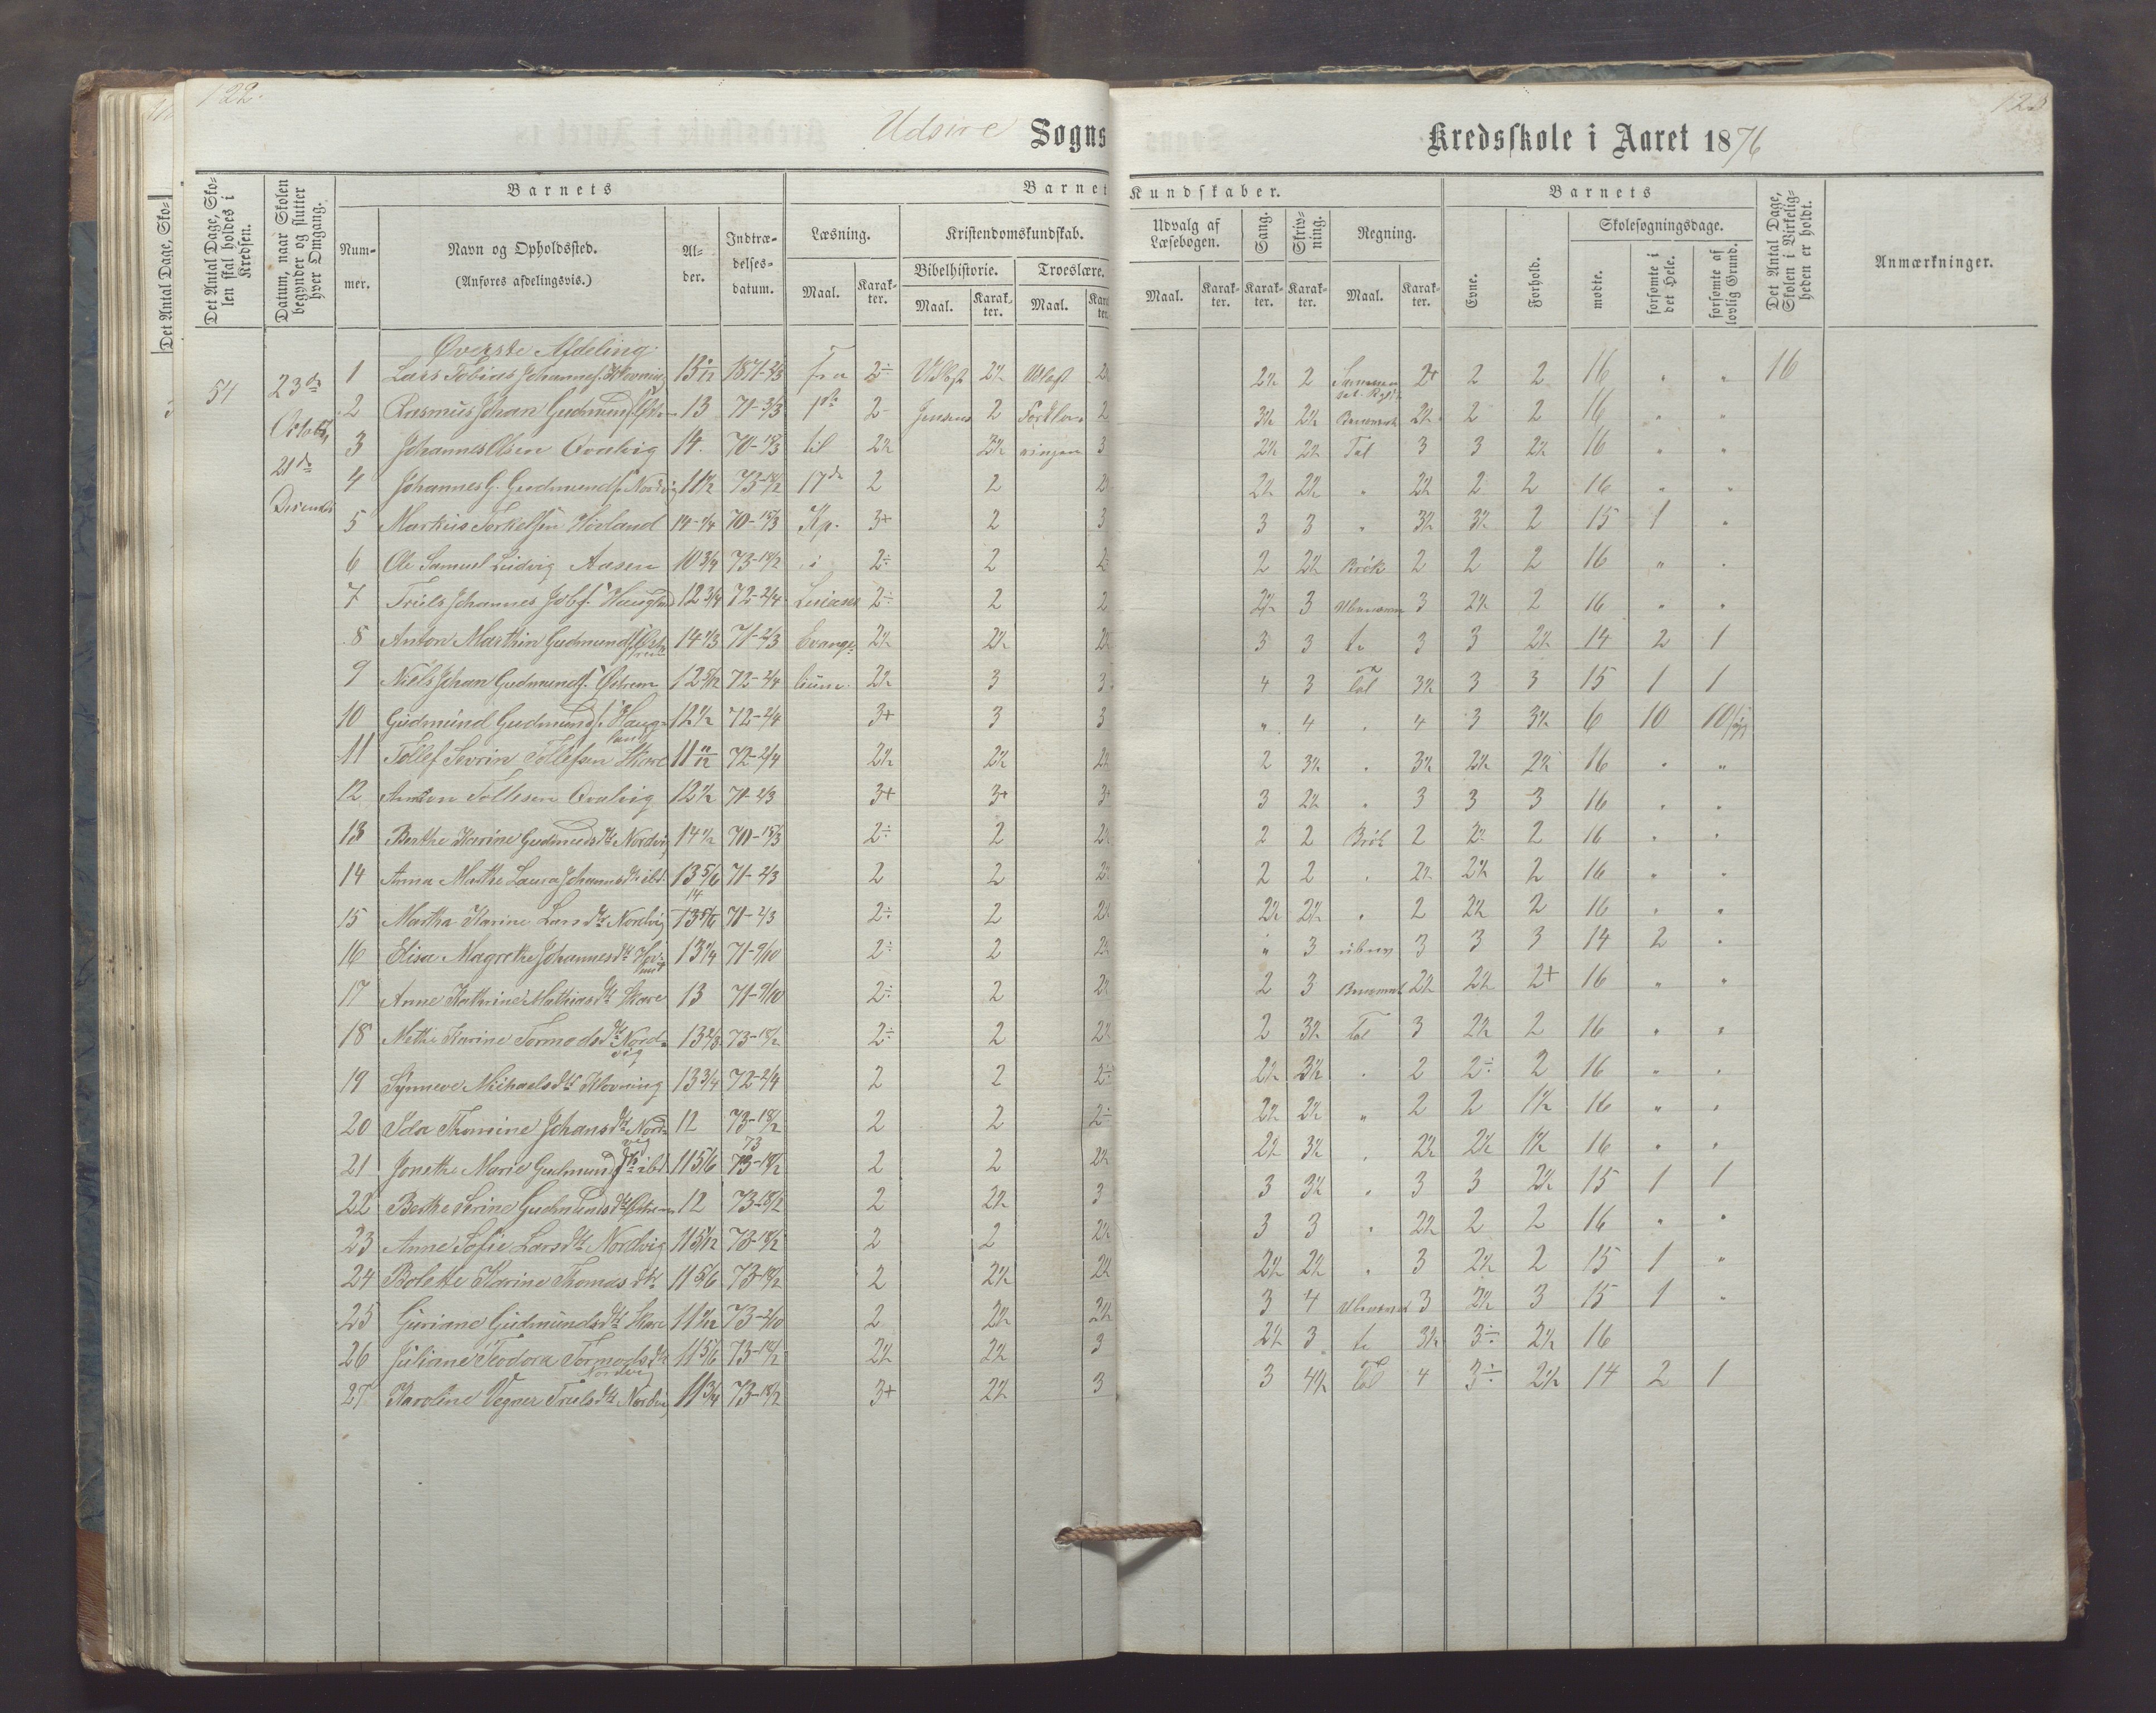 122.
Udsire Sogns Kredsskole i Aaret 1876
Det Antal Dage, Skolen skal holdes i Kredsen.
Datum, naar Skolen begynder og slutter hver Omgang.
Barnets
Nummer.
Navn og Opholdssted.
(Anføres afdelingsvis.)
Alder.
Indtrædelsesdatum.
Barnets Kundskaber.
Læsning.
Maal. Karakter.
Kristendomskundskab.
Bibelhistorie. Troeslære.
Maal. Karakter. Maal. Karakter.
Udvalg af Læsebogen.
Maal. Karakter.
Sang. Karakter.
Skrivning. Karakter.
Regning.
Maal. Karakter.
Barnets
Evne. Forhold.
Skolesøgningsdage.
mødte. forsømte i det Hele. forsømte af lovlig Grund.
Det Antal Dage, Skolen i Virkeligheden er holdt.
Anmærkninger.
Øverste Afdeling.
54 23de 1 Lars Tobias Johannes. Kovning 1871-2/3 Fra 2÷ 2½ 2½ 2 2+ 2 2 16 " " 16
2 Rasmus Johan Gudmunds. 13 71-2/3 1ste 2- Jensens 2 Forklaringen 2 3½ 2½ 2½ 2 2 16 " "
21de 3 Johannes Olsen Qvalvig 14 70-15/3 til 2½ 3½ 3 2½ 2½ Tal 3 3 2½ 16 " "
4 Johannes G. Gudmunds. Nordvig 11½ 73-18/2 17de 2 2 2½ 2½ " 2½ 2 2 16 " "
5 Markus Torkelsen Hovland 14-1/4 70-15/3 Kp. 3+ 2 3 3 3 " 3½ 3½ 2 15 1 "
6 Ole Samuel Ludvig Aasen 10 3/4 73-18/2 i 2÷ 2 2 2 2½ Brök 2 2 2 16 " "
7 Truls Johannes Haugland 12 3/4 72-2/4 2÷ 2 2 2½ 3 3 2½ 2 16 " "
8 Anton Marthin Gudmunds. Østrem 14 1/3 71-2/3 Evange- 2½ 2½ 2½ 3 3 3 3 2½ 14 2 1
9 Niels Johan Gudmunds. Østrem 12 5/12 72-2/4 lium. 2½ 3 3 4 3 Tal 3½ 3 3 15 1 1
10 Gudmund Gudmunds. Haugland 12½ 72-2/4 3+ 3 3 " 4 " 4 3 3½ 6 10 10
11 Tollef Sevrin Tollefsen Skare 11 11/12 72-2/4 2½ 2½ 2½ 2 3½ " 3½ 2½ 2½ 16 " "
12 Tollesen Qvalvig 12½ 71-2/3 3+ 3+ 3+ 3 2½ " 3 3 3 16 " "
13 Berthe Karine Gudmundsdt. Nordvig 14½ 70-15/3 2÷ 2 2½ 2 2 Brök 2 2 16 " "
14 Anna Marthe Laura Johannsdt. ibd. 13 5/6 71-2/3 2 2 2½ 2 2 " 2½ 2½ 2 16 " "
15 Martha Karine Larsdt. Nordvig 14 71-2/3 2÷ 2 2½ 2½ 2½ " 2 2½ 2 16 " "
16 Elisa Magrethe Johannesdt. 13 1/4 71-9/10 2÷ 2 2½ " 3 3 3 3 14 2 "
17 Anne Kathrine Mathiasdt. Skare 13 71-9/10 2÷ 2 2½ 2 3 2½ 2½ 2+ 16 " "
18 Methe Karine Tormodsdt. Nordvig 13 2/3 73-18/2 2÷ 2 2½ 2 3½ Tal 3 2½ 2 16 " "
19 Synneve Michaelsdt. Kovning 13 3/4 72-2/4 2 2 2÷ 2½ 3½ " 2 2÷ 2 16 " "
20 Ida Thomine Johansdt. Nordvig 12 73-18/2 2 2 2÷ 2½ 2½ " 2 2 1½ 16 " "
21 Jonethe Marie Gudmundsdt. ibd. 11 5/6 73-18/2 2 2 2½ 2½ 3½ " 2½ 2½ 1½ 16 " "
22 Berthe Serine Gudmundsdt. Østrem 12 73-18/2 2 2½ 3 3 3½ " 3 3 2½ 15 1 1
23 Anne Sofie Larsdt. Nordvig 11 5/12 73-18/2 2 2 2½ 3 3 " 2½ 2 2 16 " "
24 Bolette Karine Thomasdt. 11 5/6 73-18/2 2 2½ 2½ 2½ 2½ " 3 2½ 2 15 1 "
25 Guriane Gudmundsdt. Skare 73-2/10 2 2½ 2½ 3 4 3 2½ 3 15 1 "
26 Juliane Teodora Tormodsdt. Nordvig 11 5/6 73-18/2 2½ 2½ 3 2½ 3 3½ 3÷ 2½ 16
27 Karoline Vegner Trulsdt. Nordvig 11 3/4 73-18/2 3+ 2½ 3 3 4½ Tal 4 3÷ 2½ 14 2 1